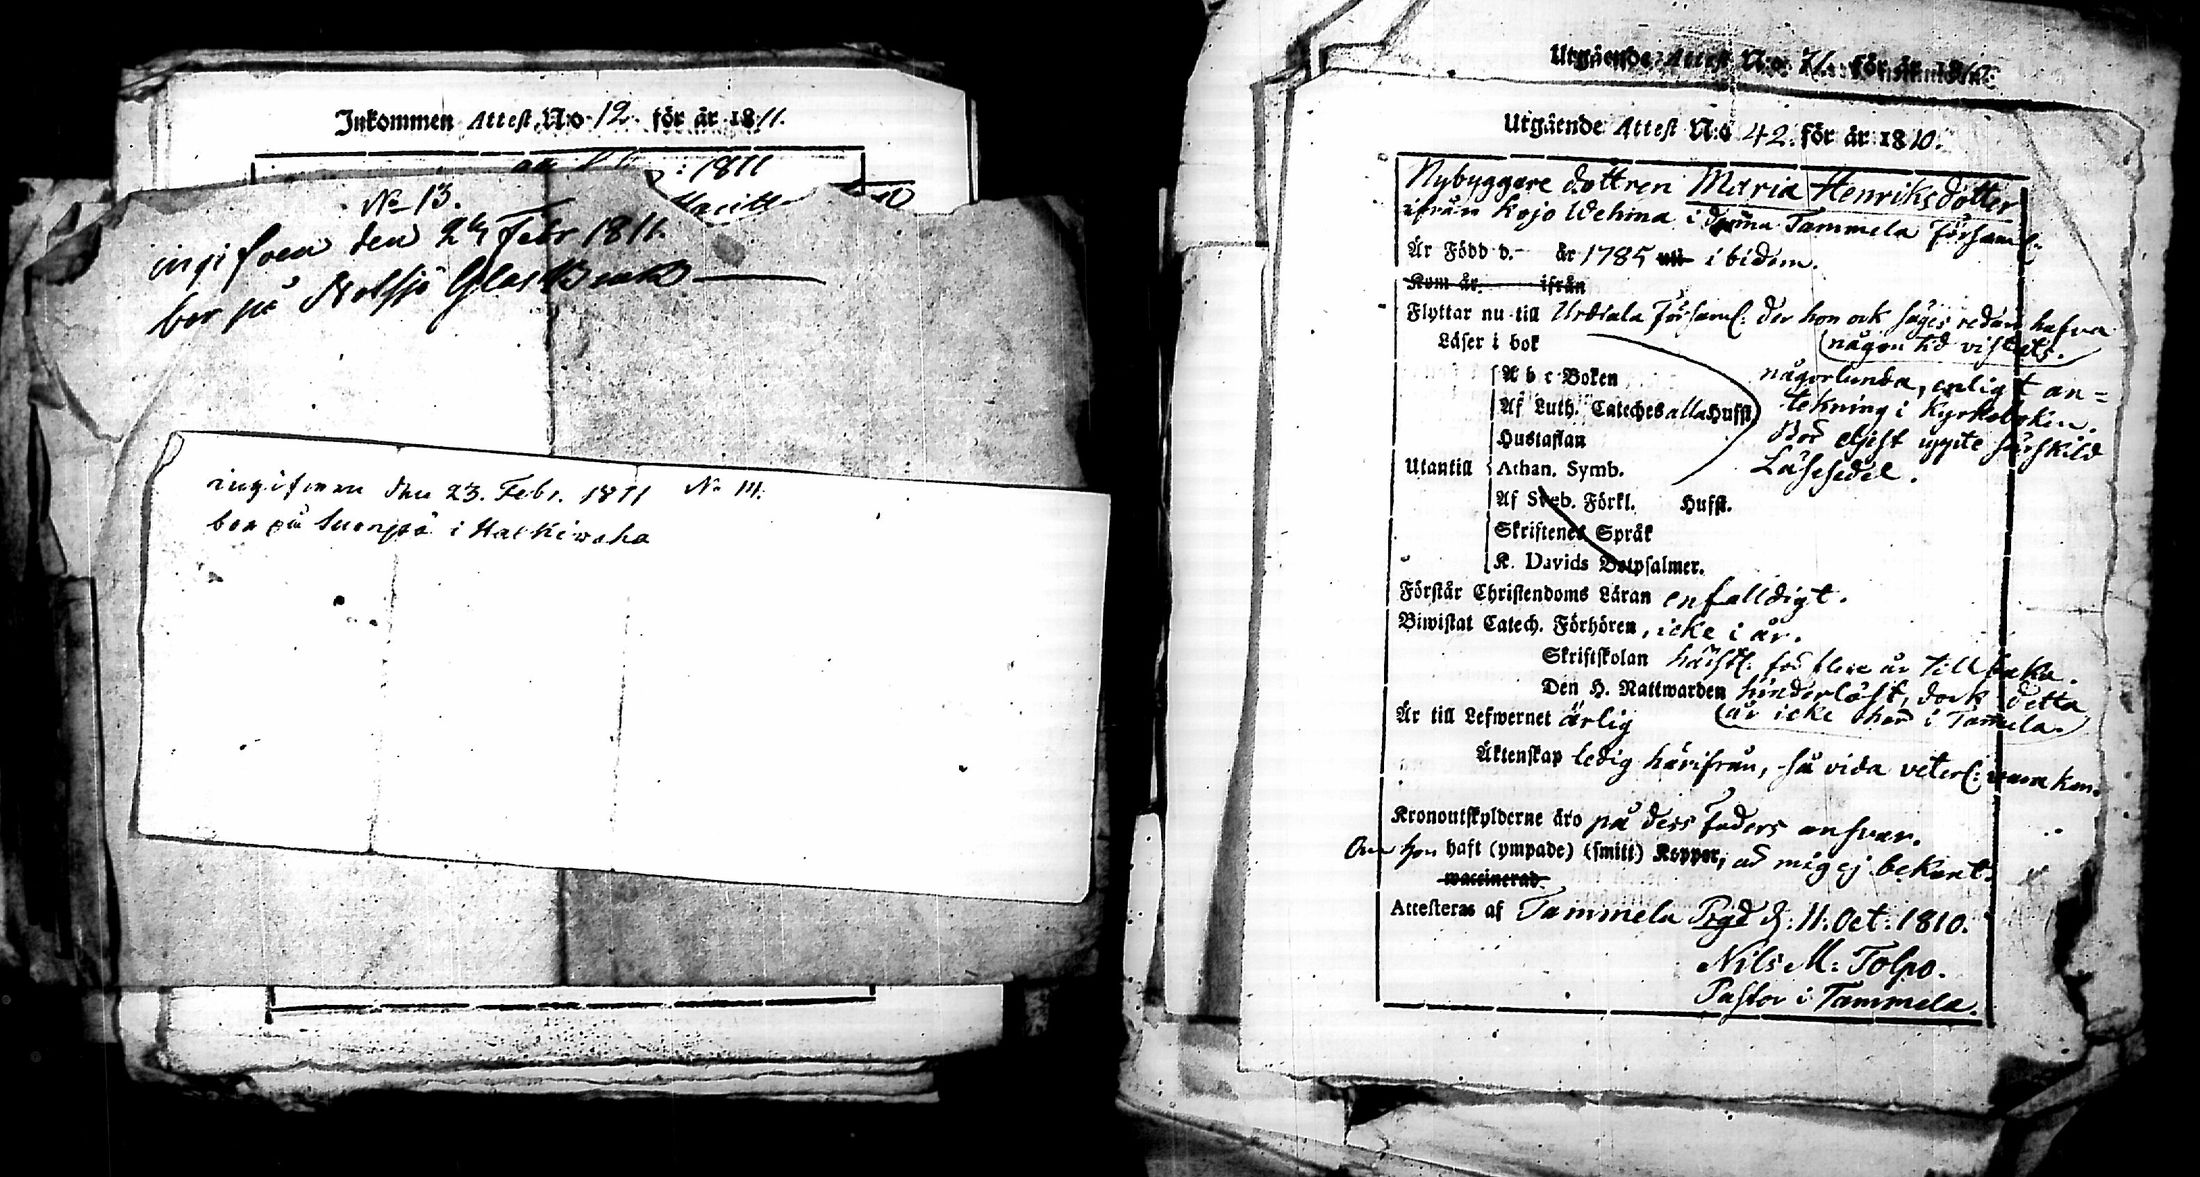 Inkommen Attest N:o 12. för år 1811.
: 1811
No 13.
ingifven den 24 Febr 1811.
bor på Notsjö Glas Bruk
ingifven den 23. Febr. 1811 No 14.
bor på i
Utgående Attest N:o för år 18
Utgående Attest N:o 42. för år 1810.
Nybyggare dottren Maria Henriksdotter
ifrån Kojo i denna Tammela Församl:
Är Född d.- år 1785 i bidem.
Kom år ifrån
Flyttar nu till Urdiala Församl: der hon ock säges redan hafva
någon tid vistats.
Läser i bok
A b c Boken någorlunda, enligt an=
Af Luth. Cateches alla Hufst. tekning i Kyrkoboken.
Hustaflan Bör eljest upte särskild
Utantill Athan. Symb. Läsesedel.
Af Sveb. Förkl. Hufst.
Skriftenes Språk
K. Davids Botpsalmer.
Förstår Christendoms Läran enfalldigt.
Biwistat Catech. Förhören, icke i år.
Skriftskolan för flere år tillbaka.
Den H. Nattwarden hinderlöst, dock detta
år icke här i Tammela.
Är till Lefwernet ärlig
Äktenskap ledig härifrån, så vida veterl:
Kronoutskylderne äro på dess Faders ansvar.
Om hon haft (ympade) (smitt) Koppor, är mig ej bekant.
waccinerad
Attesteras af Tammela Prgd d. 11. Oct. 1810.
Nils M: Tolpo.
Pastor i Tammela.